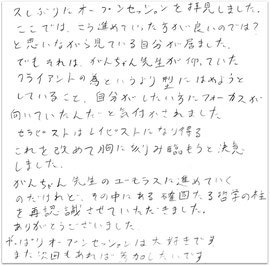 久しぶりにオープンセッションを拝見しました。
ここでは、こう進めていた方が良いのでは?
と思いながら見ている自分が居ました。
でもそれは、がんちゃん先生が仰っていた
クライアントの為というより型にはめようと
していること、自分がしたい方にフォーカスが
向いていたんだ…と気付かされました。
セラピストはレイピストになり得る
これを改めて胸に刻み臨もうと決意
しました。
がんちゃん先生のユーモラスに進めていく
のだけれど、その中にある確固たる哲学の柱
を再認識させていただきました。
ありがとうございました
やっぱりオープンセッションは大好きです
また次回もあれば参加したいです